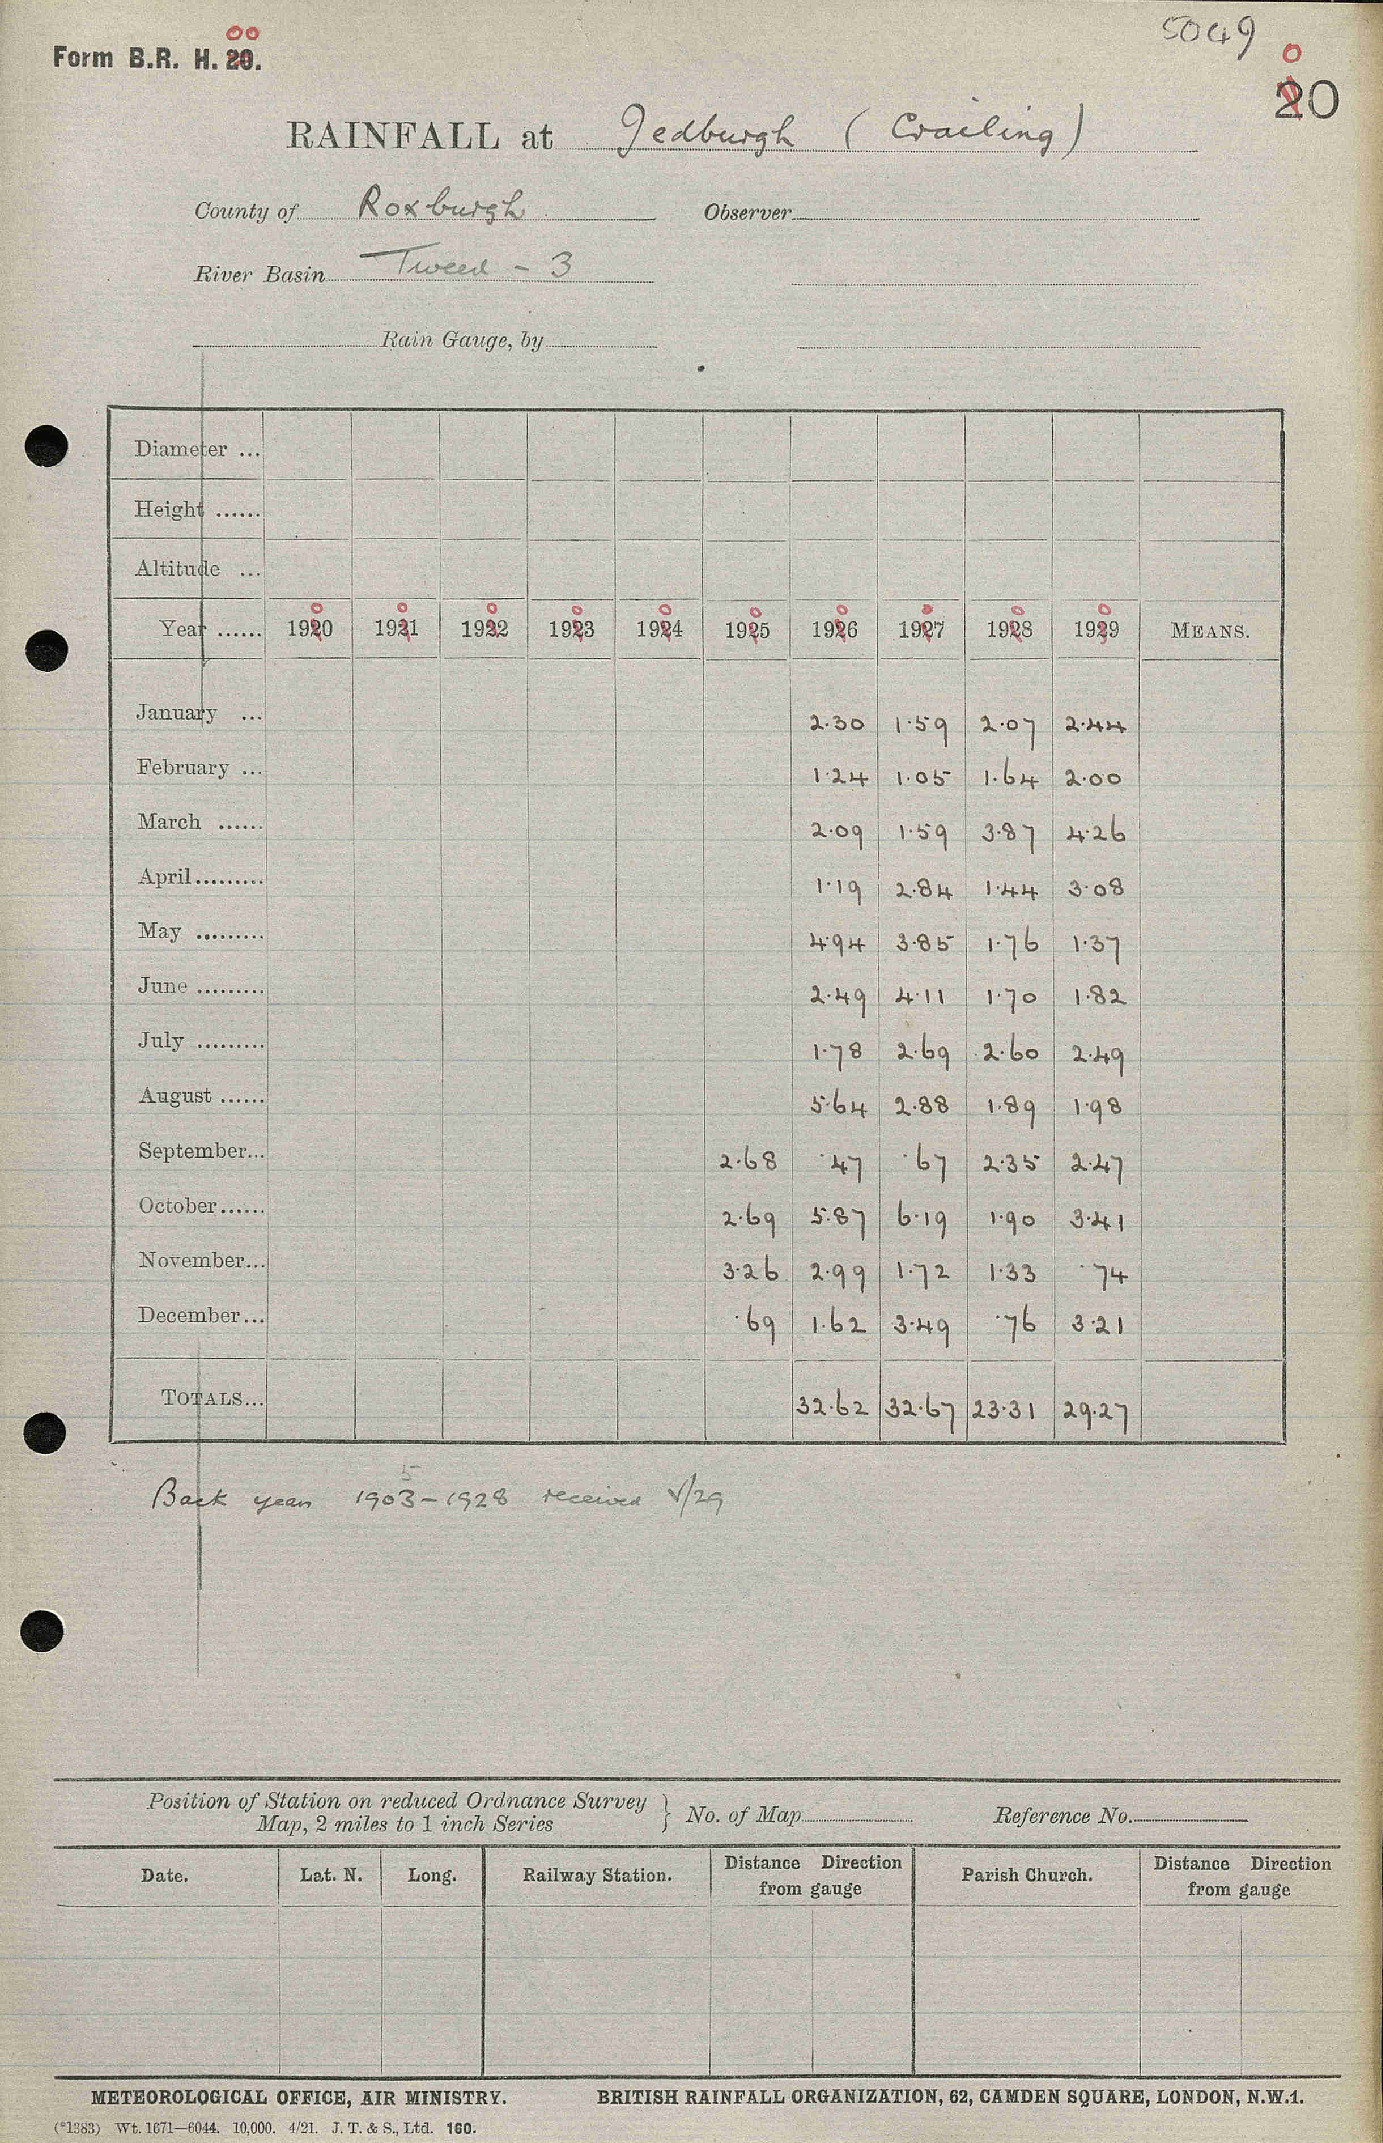 5049
00
Form B.R. H. 20.
0
20
RAINFALL at Jedburgh (Crailing)
County of Roxburgh Observer
River Basin Tweed - 3
Rain Gauge, by
Diameter ...
Height ......
Altitude ...
0 0 0 0 0 0 0 0 0 0
Year ...... 1920 1921 1922 1923 1924 1925 1926 1927 1928 1929 MEANS.
January ... 2.30 1.59 2.07 2.44
February ... 1.24 1.05 1.64 2.00
March ...... 2.09 1.59 3.87 4.26
April ......... 1.19 2.84 1.44 3.08
May ......... 4.94 3.85 1.76 1.37
June ......... 2.49 4.11 1.70 1.82
July ......... 1.78 2.69 2.60 2.49
August ...... 5.64 2.88 1.89 1.98
September... 2.68 .47 .67 2.35 2.47
October...... 2.69 5.87 6.19 1.90 3.41
November... 3.26 2.99 1.72 1.33 .74
December... .69 1.62 3.49 .76 3.21
TOTALS... 32.62 32.67 23.31 29.27
5
Back years 1903-1928 received V/29
Position of Station on reduced Ordnance Survey
Map, 2 miles to 1 inch Series } No. of Map Reference No.
Date. Lat. N. Long. Railway Station. Distance Direction from gauge Parish Church. Distance Direction from gauge
METEOROLOGICAL OFFICE, AIR MINISTRY. BRITISH RAINFALL ORGANIZATION, 62, CAMDEN SQUARE, LONDON, N.W.1.
(*1383) Wt. 1671—6044. 10,000. 4/21. J. T. & S., Ltd. 160.